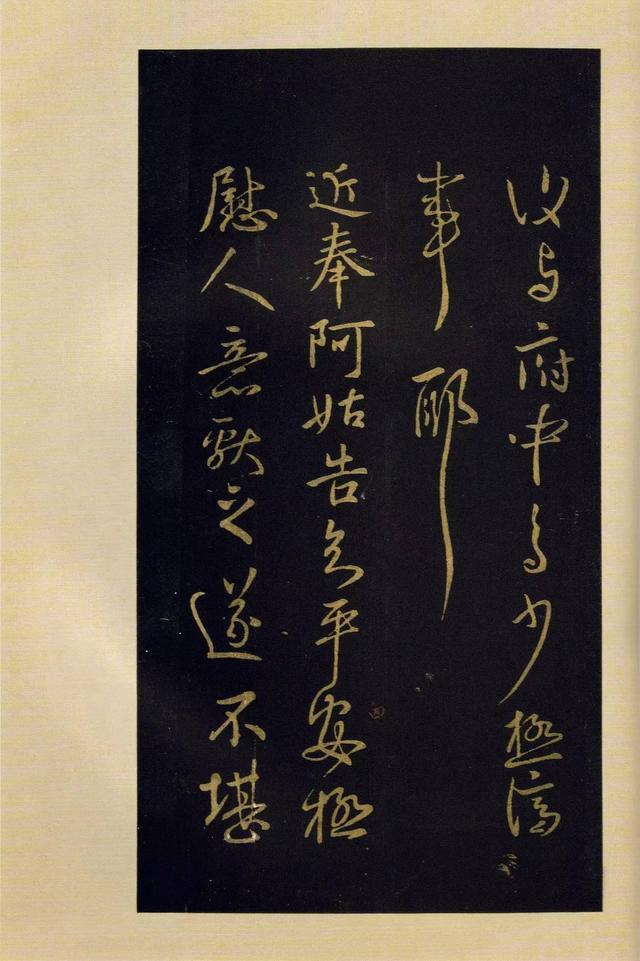 与府中少極濟
事耶
近奉阿姑告平安極
慰人意獻之遂不堪